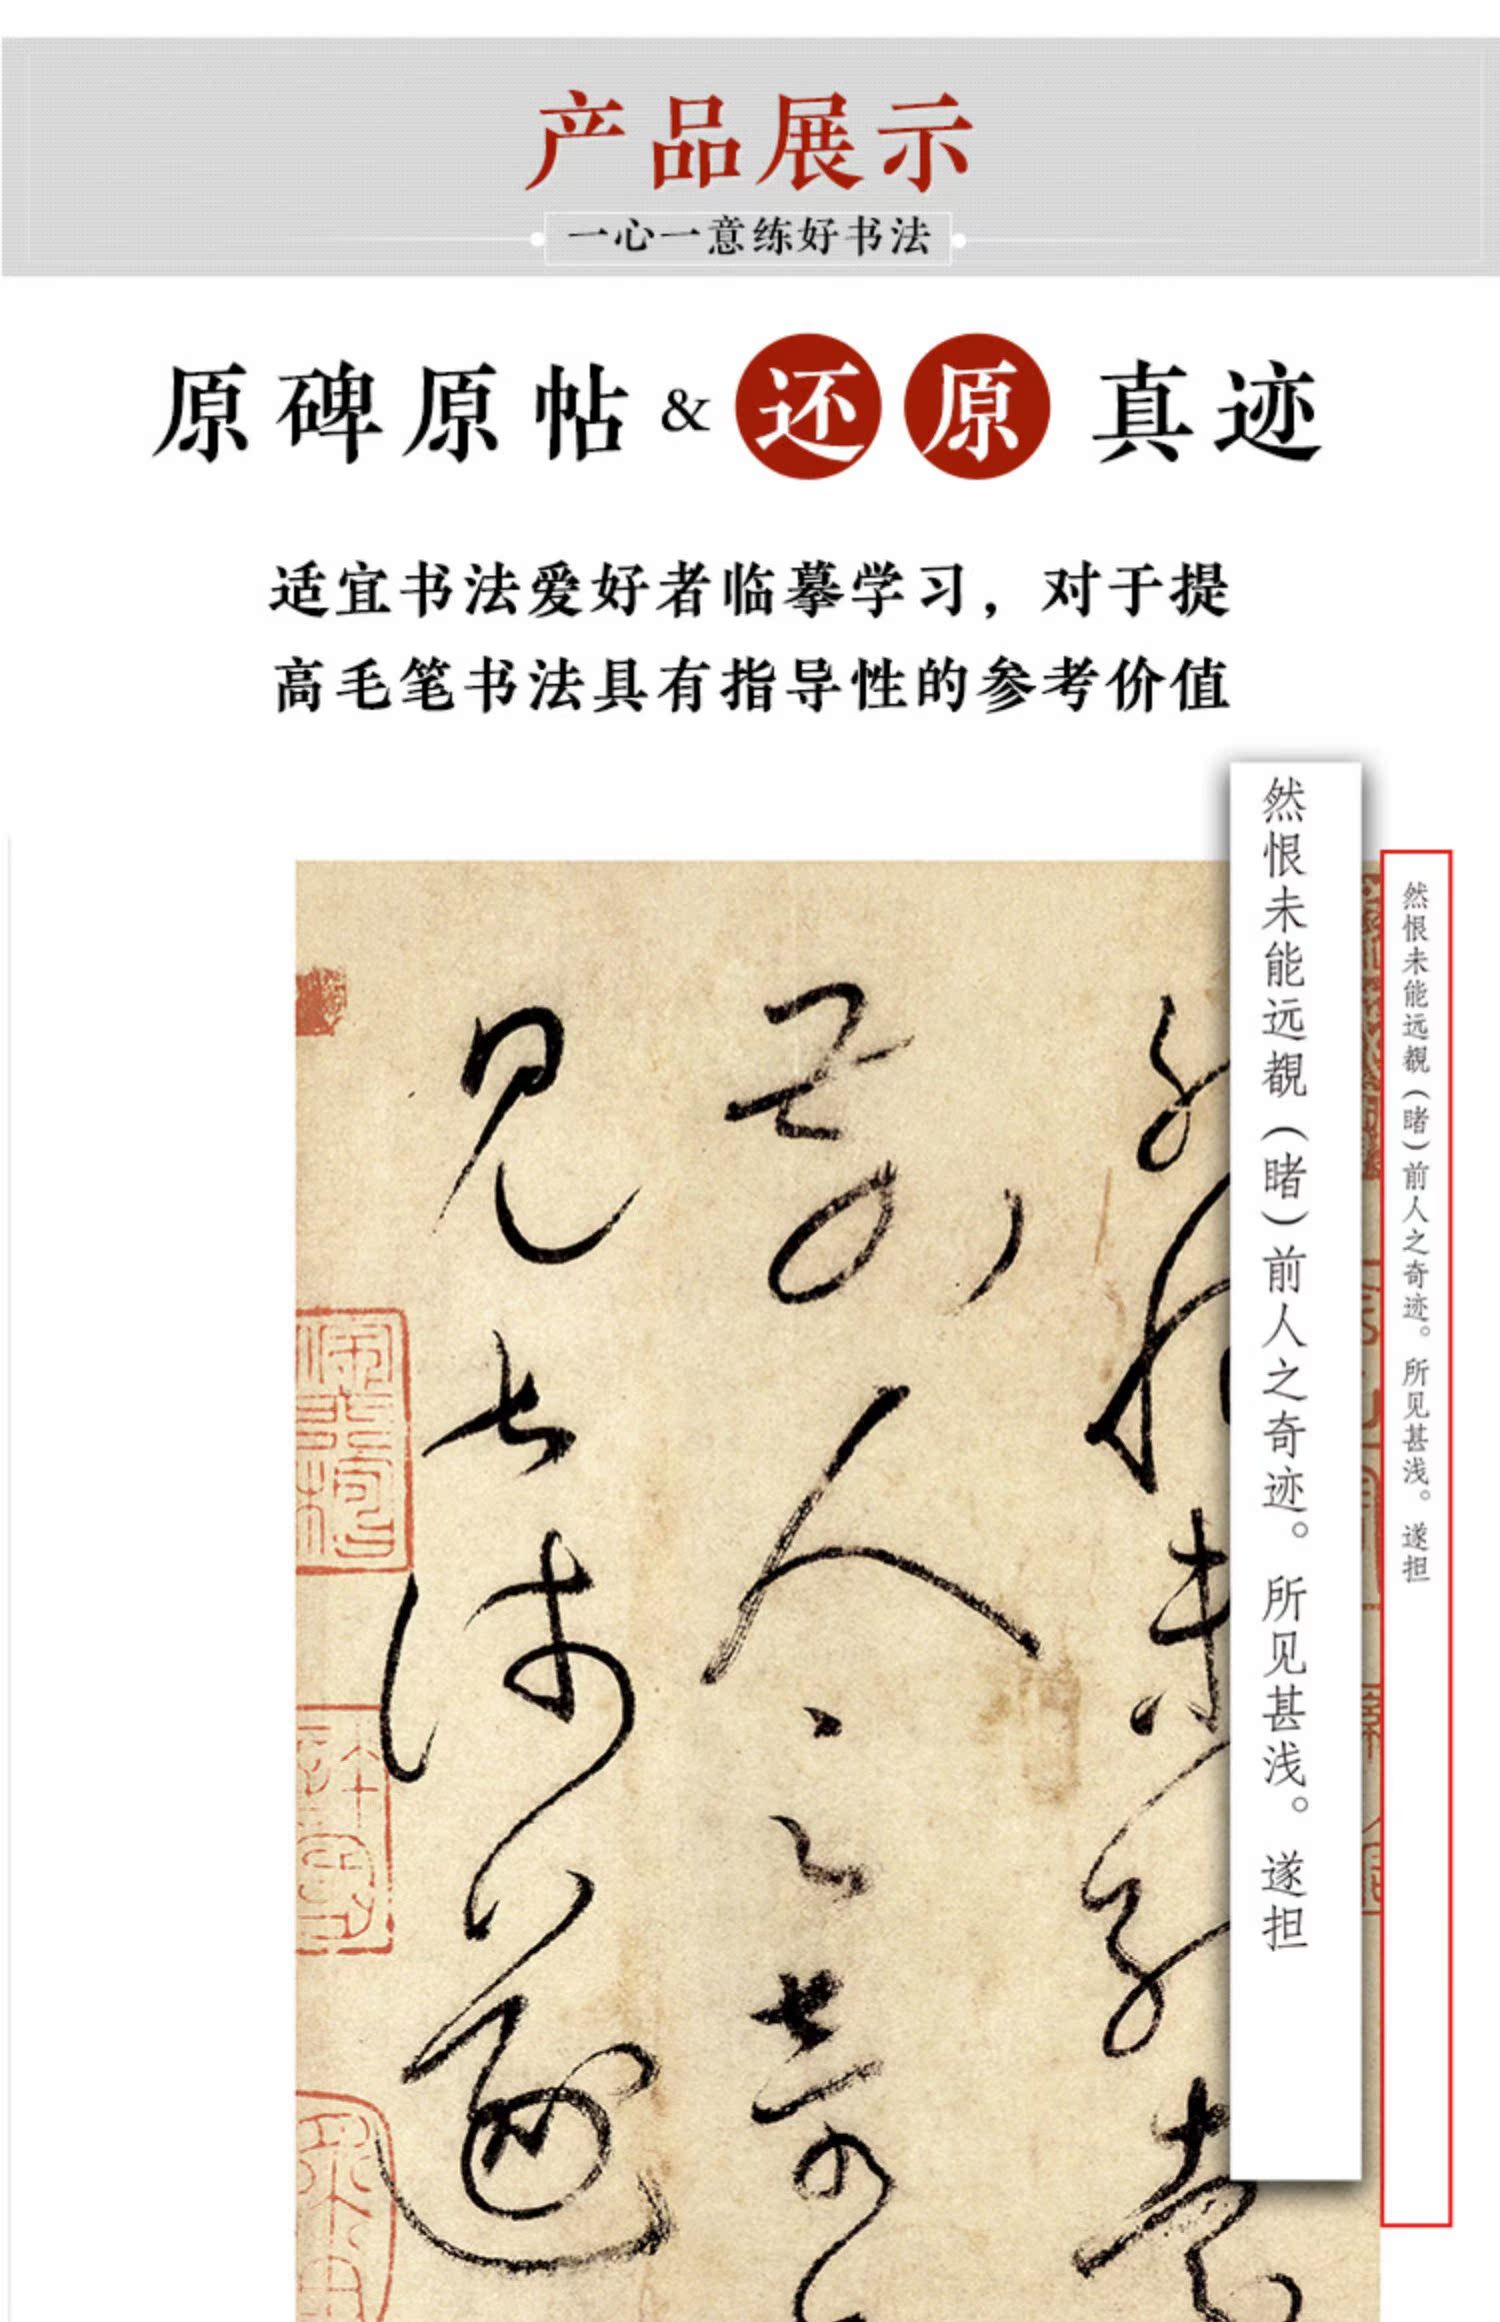 产品展示
一心一意练好书法
原碑原帖&还原真迹
适宜书法爱好者临摹学习，对于提
高毛笔书法具有指导性的参考价值
然恨未能远覩（睹）前人之奇迹。所见甚浅。遂担
然恨未能远覩（睹）前人之奇迹。所见甚浅。遂担
然恨未能远
覩前人之奇
见甚浅遂